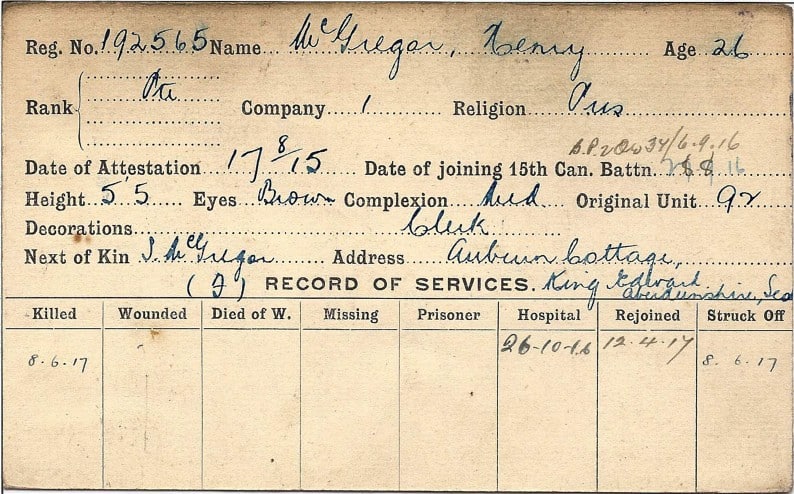 Reg. No. 192565 Name McGregor, Henry Age 26
Rank Pte Company 1 Religion Pres
34/6.9.16
Date of Attestation 17/8/15 Date of joining 15th Can. Battn. 16
Height 5'5 Eyes Brown Complexion Med Original Unit 92
Decorations Clerk
Next of Kin J. McGregor Address Auburn Cottage,
(F) RECORD OF SERVICES. King Edward
Aberdeenshire, Sco
Killed Wounded Died of W. Missing Prisoner Hospital Rejoined Struck Off
8.6.17 26-10-16 12.4.17 8.6.17